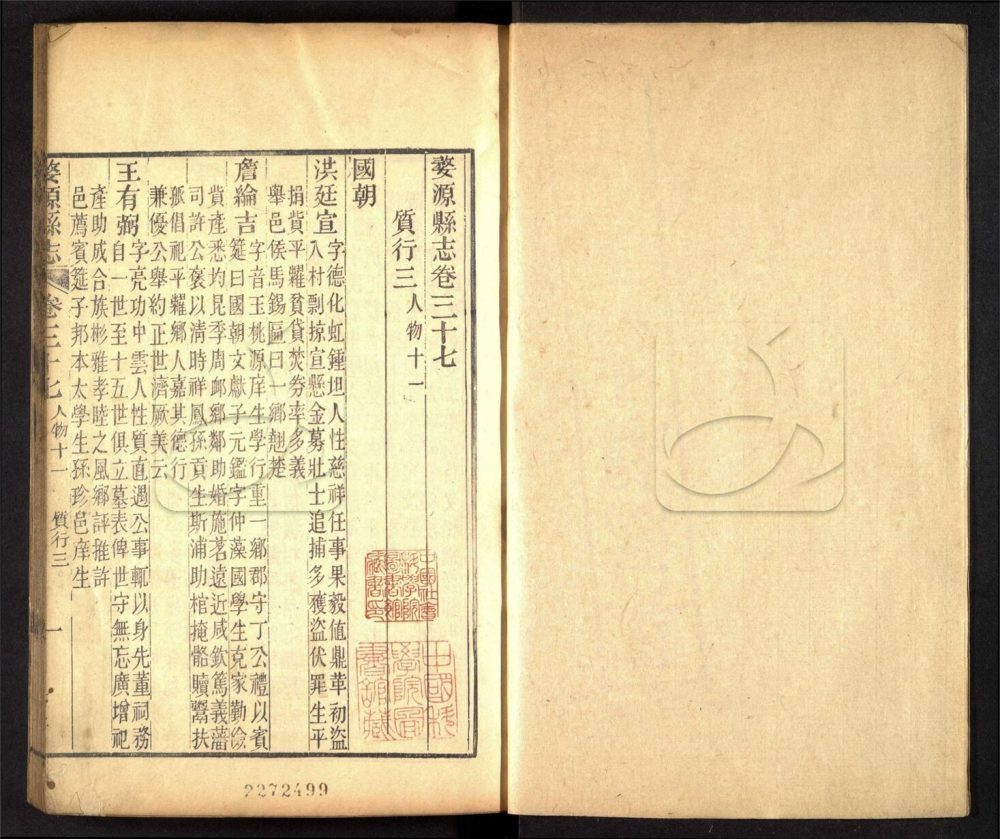 婺源縣志卷三十七
質行三 人物十一
國朝
洪廷宣 字德化虹鍾坦人性慈祥任事果毅值鼎革初盜
入村剽掠宣懸金募壯士追捕多獲盜伏罪生平
捐貲平糶貧貸焚券率多義
舉邑侯馬錫匾曰一鄉翹楚
詹綸吉 字音玉桃源庠生學行重一鄉郡守丁公禮以賓
筵曰國朝文獻子元鑑字仲藻國學生克家勤儉
貲產悉均昆季周卹鄉鄰助婚施茗遠近咸欽篤義藩
司許公褒以清時祥鳳孫貢生斯浦助棺掩骼贖鬻扶
孤倡祀平糶鄉人嘉其德行
兼優公舉約正世濟厥美云
王有弼 字亮功中雲人性質直遇公事輒以身先董祠務
自一世至十五世俱立墓表俾世守無忘廣增祀
產助成合族彬雅孝睦之風鄉評推許
邑薦賓筵子邦本太學生孫珍邑庠生
婺源縣志 卷三十七 人物十一 質行三 一
中國社會科學院圖書館藏書印
中國科學院圖書館藏
2272499